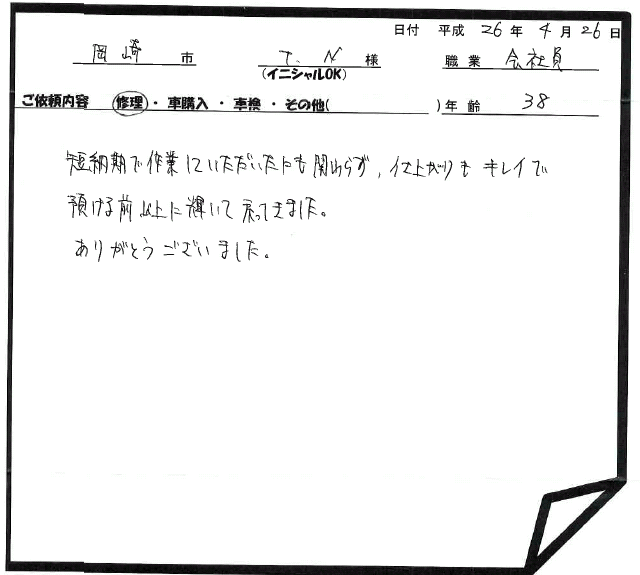 日付 平成 26 年 4 月 26 日
岡崎 市 T. N 様 職業 会社員
(イニシャルOK)
ご依頼内容 修理・車購入・車検・その他( )年齢 38
短納期で作業していただいたにも関わらず、仕上がりも キレイで
預ける前以上に輝いて戻ってきました。
ありがとうございました。